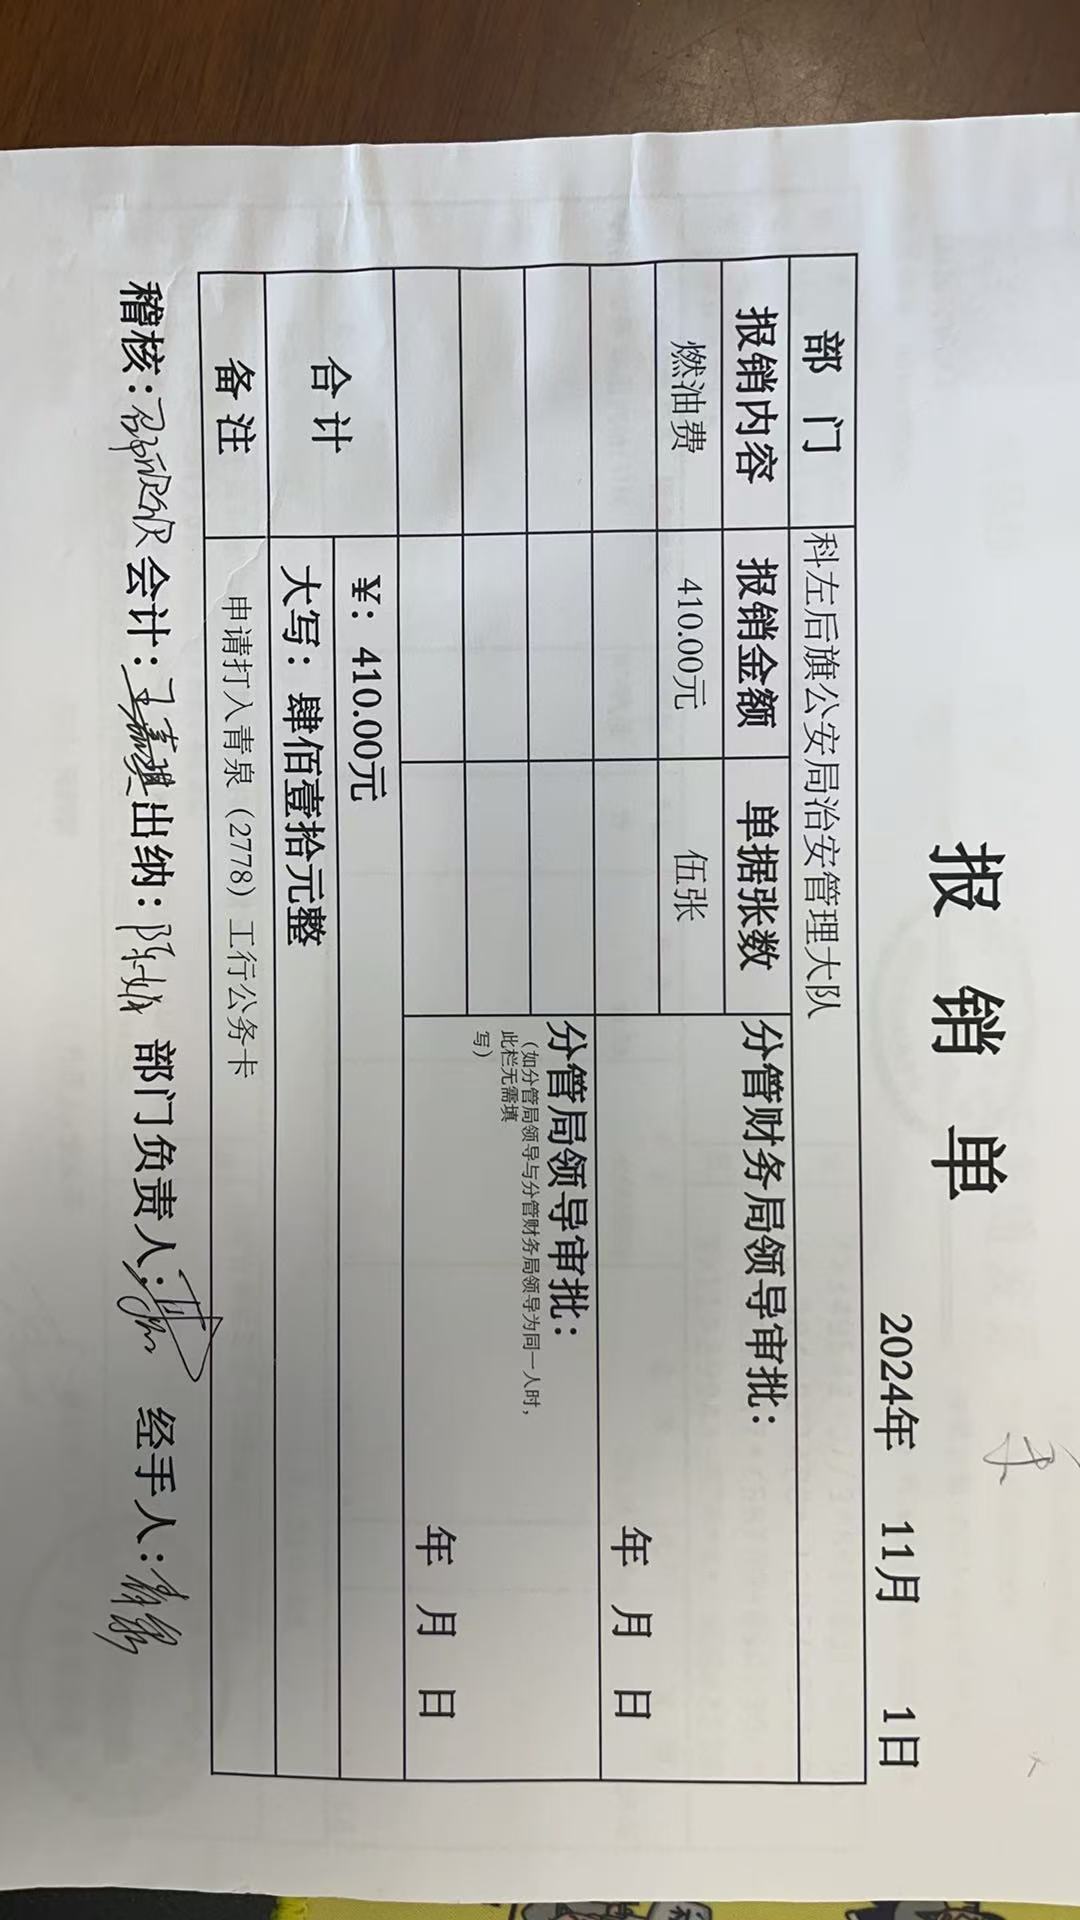 报 销 单
2024年 11月 1日
部 门 科左后旗公安局治安管理大队
报销内容 报销金额 单据张数 分管财务局领导审批：
燃油费 410.00元 伍张
年 月 日
分管局领导审批：
（如分管局领导与分管财务局领导为同一人时，
此栏无需填
写）
年 月 日
合 计 ¥：410.00元
大写：肆佰壹拾元整
备 注 申请打入青泉（2778）工行公务卡
稽核： 会计：王嘉琪 出纳： 部门负责人： 经手人：